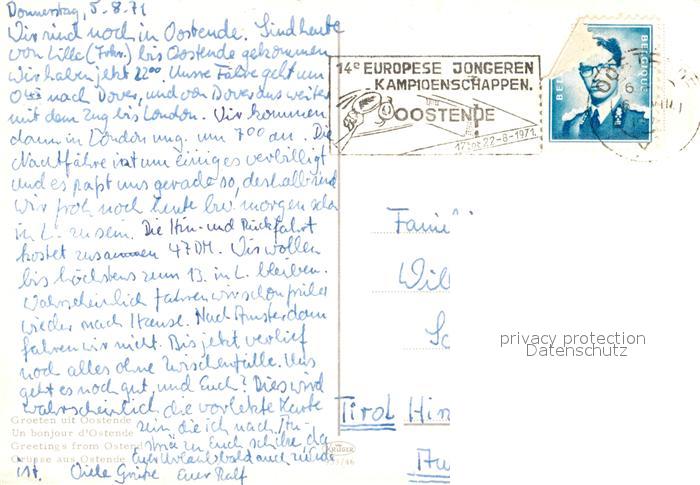 Donnerstag, 5.8.71
Wir sind noch in Oostende. Sind heute
von Lille (Frkr.) bis Oostende gekommen
Wir haben jetzt 22⁰⁰. Unsre Fähre geht um
nach Dover, und von Dover aus weiter
mit dem Zug bis London. Wir kommen
dann in London ung. um 7⁰⁰ an. Die
Nachtfähre ist um einiges verbilligt
und es paßt uns gerade so, deshalb sind
wir froh noch heute bzw. morgen schon
in L. zu sein. Die Hin- und Rückfahrt
kostet zusammen 47 DM. Wir wollen
bis höchstens zum 13. in L. bleiben.
Wahrscheinlich fahren wir schon früher
wieder nach Hause. Nach Amsterdam
fahren wir nicht. Bis jetzt verlief
noch alles ohne Zwischenfälle. Uns
geht es noch gut, und Euch? Dies wird
wahrscheinlich die vorletzte Karte
sein die ich nach
zu Euch schicke, da
Euer Urlaub bald auch zuende
ist. Viele Grüße Euer Ralf
Groeten uit Oostende
Un bonjour d'Ostende
Greetings from Ostend
Grüsse aus Ostende
14e EUROPESE JONGEREN
KAMPIOENSCHAPPEN.
OOSTENDE
17 tot 22-8-1971.
BELGIE
BELGIQUE
Fami
Will
Tirol Hin
KRÜGER
privacy protection
Datenschutz